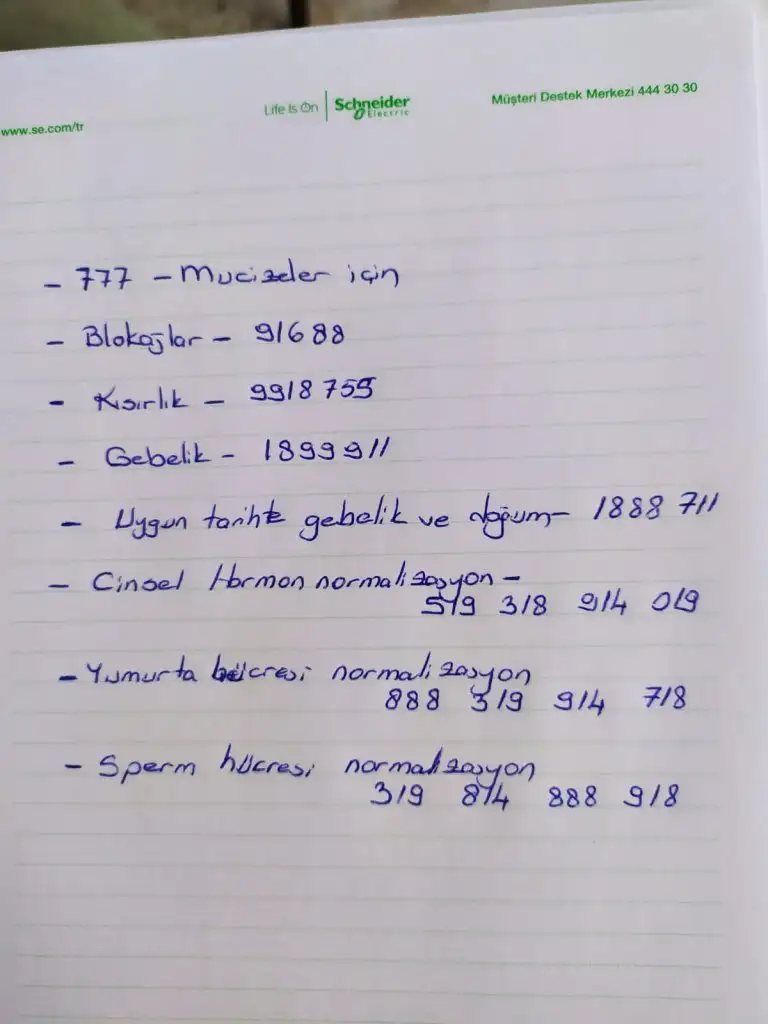 www.se.com/tr
Life Is On | Schneider Electric
Müşteri Destek Merkezi 444 30 30
- 777 - Mucizeler için
- Blokajlar - 91688
- Kısırlık - 9918 755
- Gebelik - 1899911
- Uygun tarihte gebelik ve doğum - 1888 711
- Cinsel Hormon normalizasyon -
519 318 914 019
- Yumurta hücresi normalizasyon
888 319 914 718
- Sperm hücresi normalizasyon
319 814 888 918